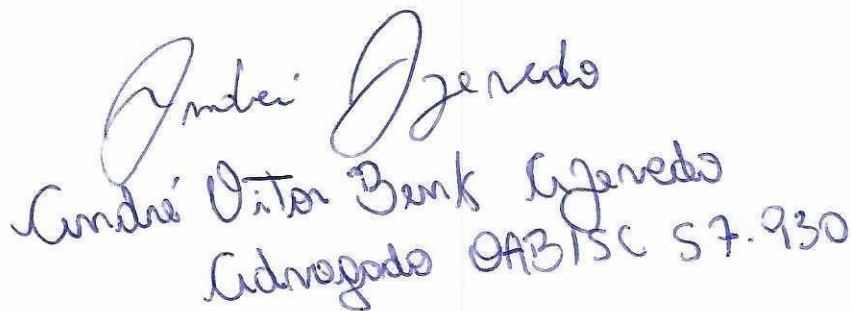 André Azevedo
André Vitor Benk Azevedo
Advogado OAB/SC 57.930